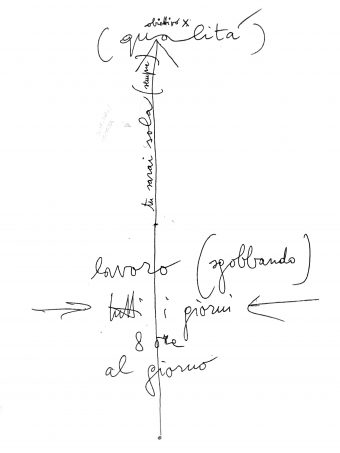 obiettivo X
(qualitá)
tu sarai sola (sempre
lavoro (sgobbando)
tutti i giorni
8 ore
al giorno